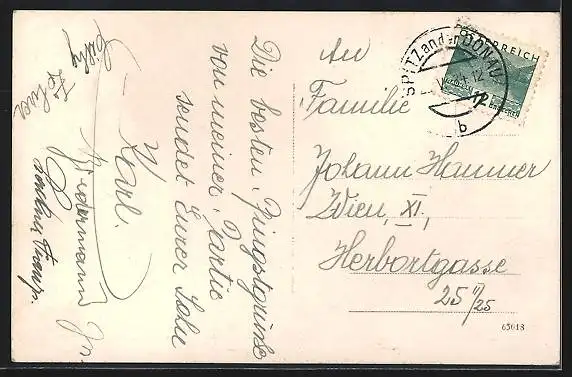 Die besten Pfingstgrüsse
von meiner Partie
sendet Eurer Sohn
Karl.
Biedermann
An
Familie
Johann Hammer
Wien, XI,
Herbortgasse
25 II/25
SPITZ an der DONAU
b
ÖSTERREICH
12
65018